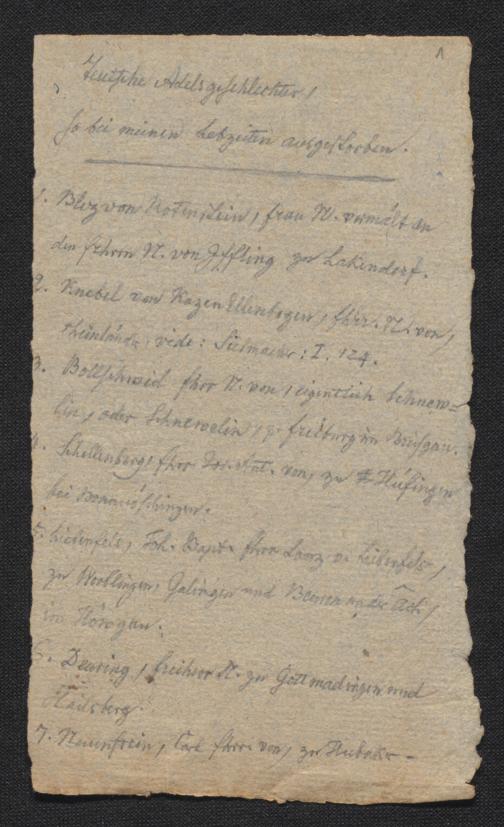 Teutsche Adelsgeschlechter,
so bei meinen Lebzeiten ausgestorben.
1. Blez von Rotenstein, frau N. vermält an
den fhrrn N. von Iffling zu Lakendorf.
2. Knebel von Kazen Ellenbogen, fhrr. N. von,
rheinländ. vide: Siebmacher: I. 124.
3. Bollschweil fhrr N. von, eigentlich Schnew=
lin, oder Schnewelin, z. freiburg im Brisgau.
4. Schellenberg, fhrr Jos. Ant. von, zu Hüfingen
bei
5. Liebenfels, Joh. Bapt. fhrr Lanz v. Liebenfels,
zu Worblingen, Galingen und Beuren an der Ach,
im Hörogau.
6. Deuring, freiherr N. zu Gottmadingen und
Hailsberg.
7. Neuenstein, Carl fhrr von, zu Hubaker -